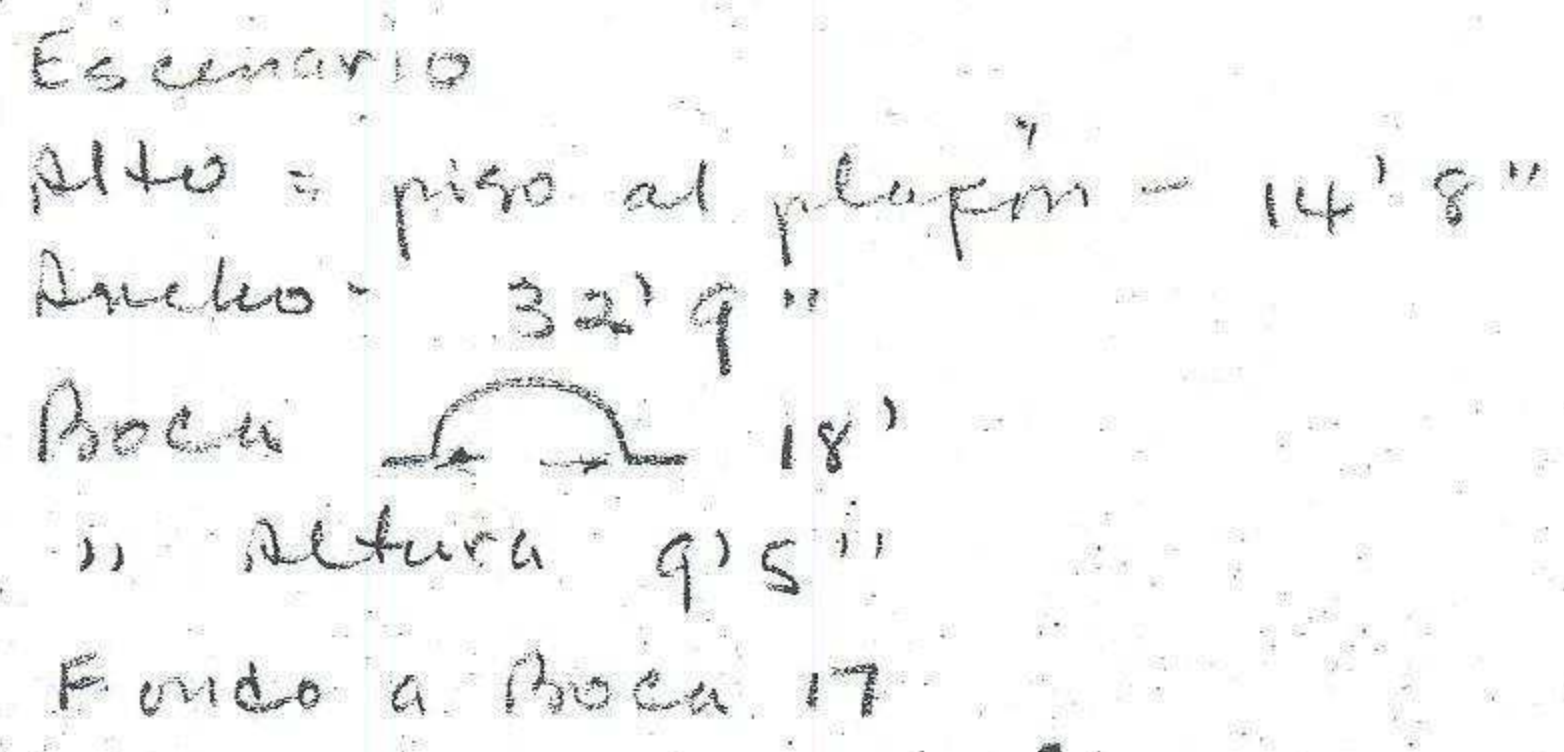 Escenario
Alto = piso al plafón - 14' 8"
Ancho - 32' 9"
Boca 18'
" Altura 9' 5"
Fondo a Boca 17